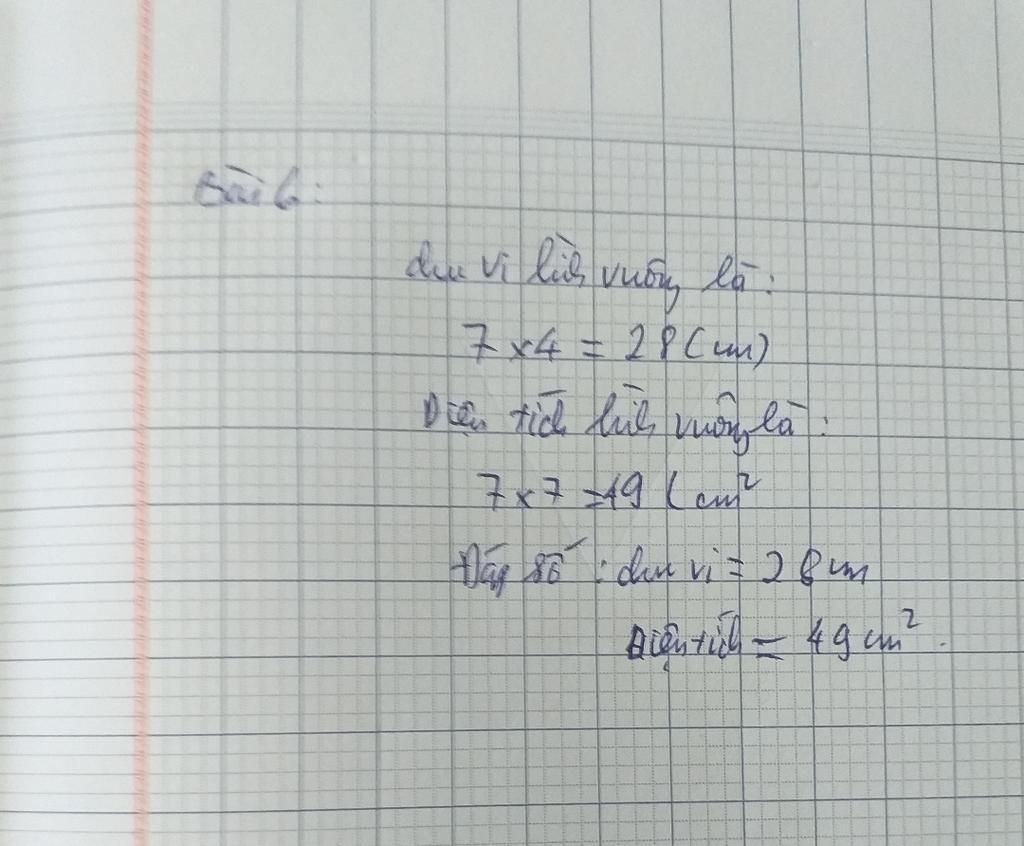 Bài 6:
chu vi hình vuông là:
7 x 4 = 28 (cm)
Diện tích hình vuông là:
7 x 7 = 49 (cm²
Đáp số: chu vi = 28 cm
Diện tích = 49 cm².